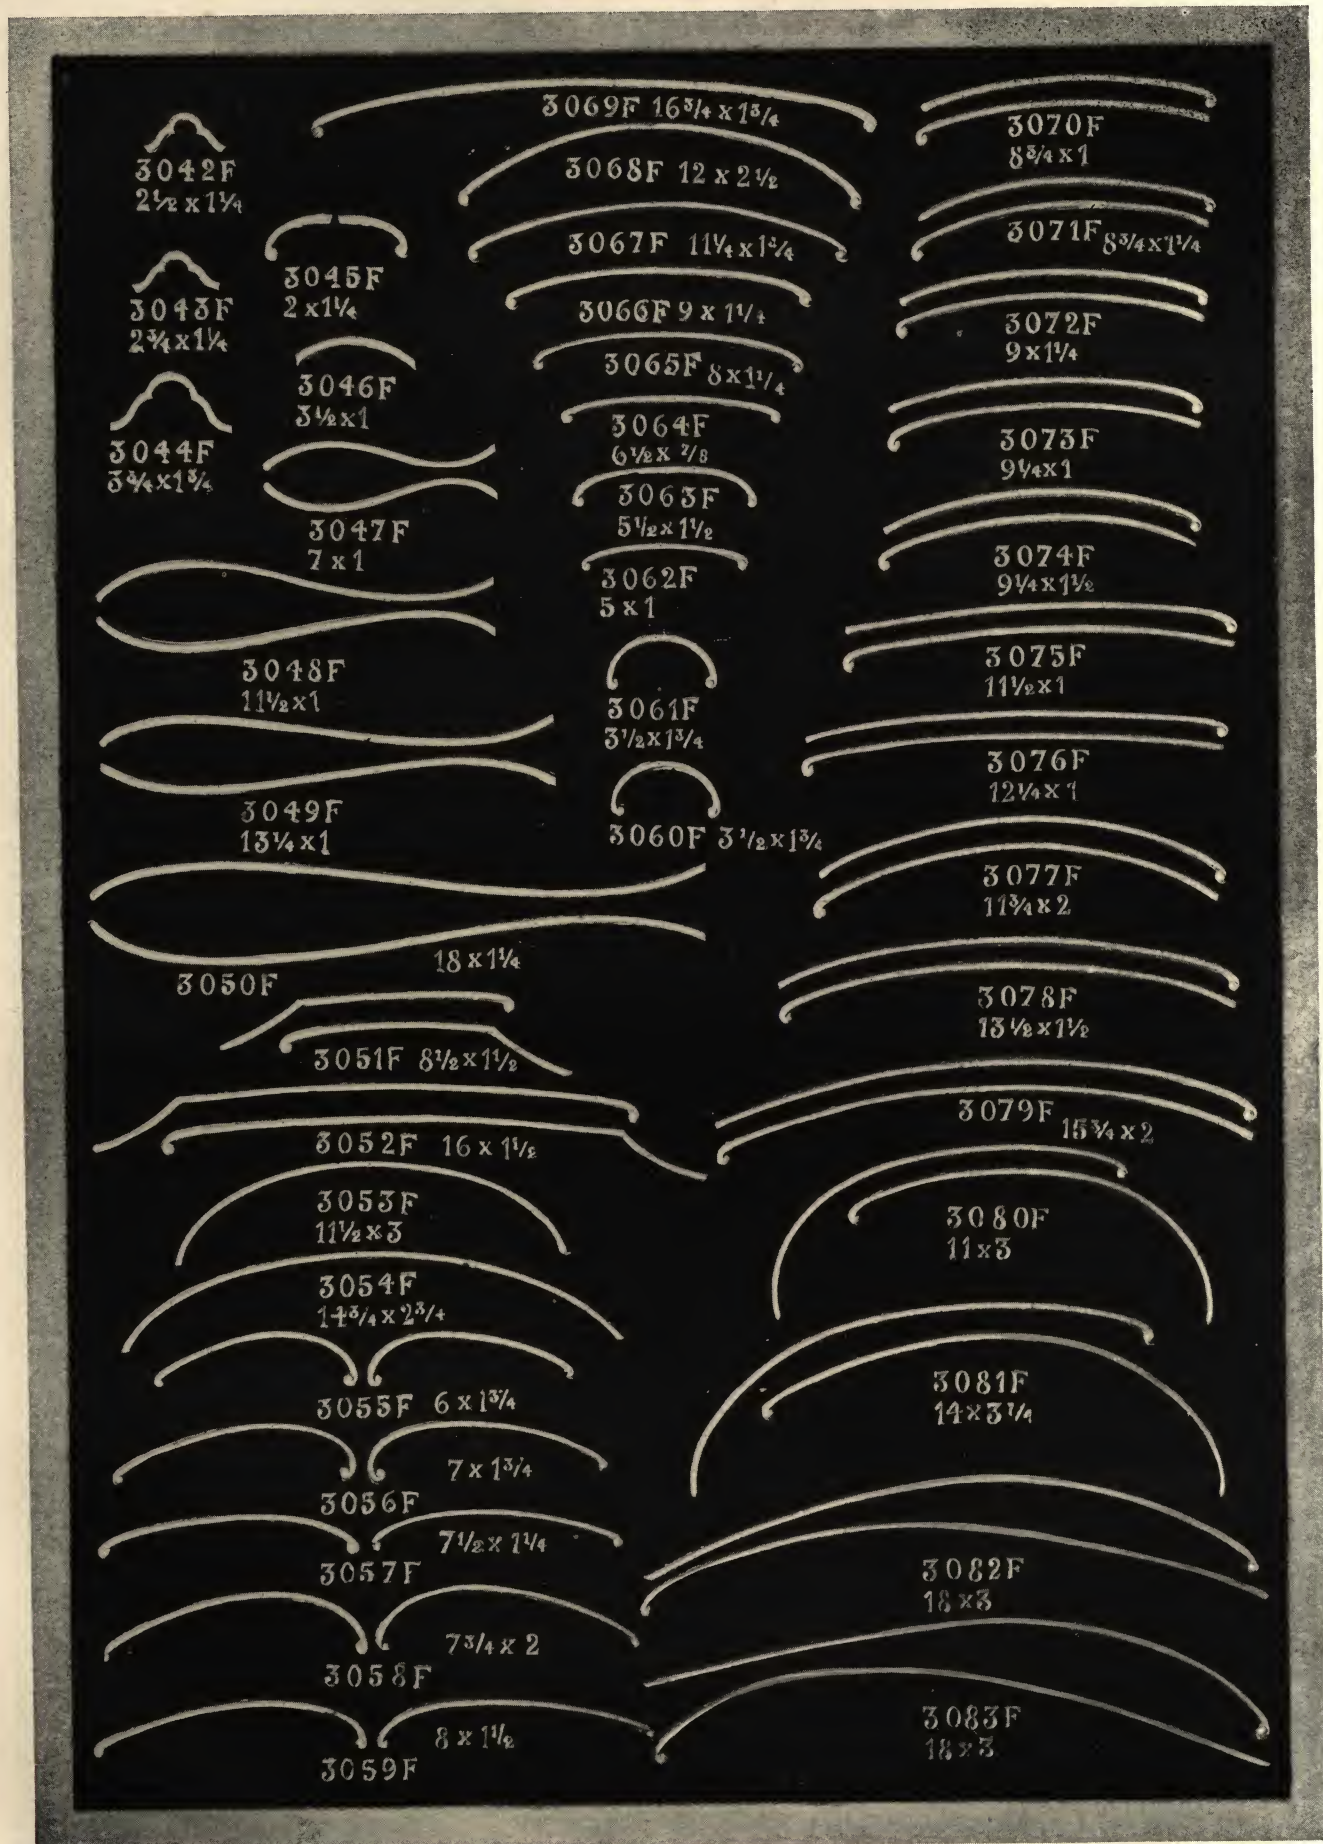 3042F
2½ x 1¼
3043F
2¾ x 1¼
3044F
3¾ x 1¾
3045F
2 x 1¼
3046F
3½ x 1
3047F
7 x 1
3048F
11½ x 1
3049F
13¼ x 1
18 x 1¼
3050F
3051F 8½ x 1½
3052F 16 x 1½
3053F
11½ x 3
3054F
14¾ x 2¾
3055F 6 x 1¾
7 x 1¾
3056F
7½ x 1¼
3057F
7¾ x 2
3058F
8 x 1½
3059F
3069F 16¾ x 1¾
3068F 12 x 2½
3067F 11¼ x 1¾
3066F 9 x 1¼
3065F 8 x 1¼
3064F
6½ x ⅞
3063F
5½ x 1½
3062F
5 x 1
3061F
3½ x 1¾
3060F 3½ x 1¾
3070F
8¾ x 1
3071F 8¾ x 1¼
3072F
9 x 1¼
3073F
9¼ x 1
3074F
9¼ x 1½
3075F
11½ x 1
3076F
12¼ x 1
3077F
11¾ x 2
3078F
13½ x 1½
3079F 15¾ x 2
3080F
11 x 3
3081F
14 x 3¼
3082F
18 x 3
3083F
18 x 3